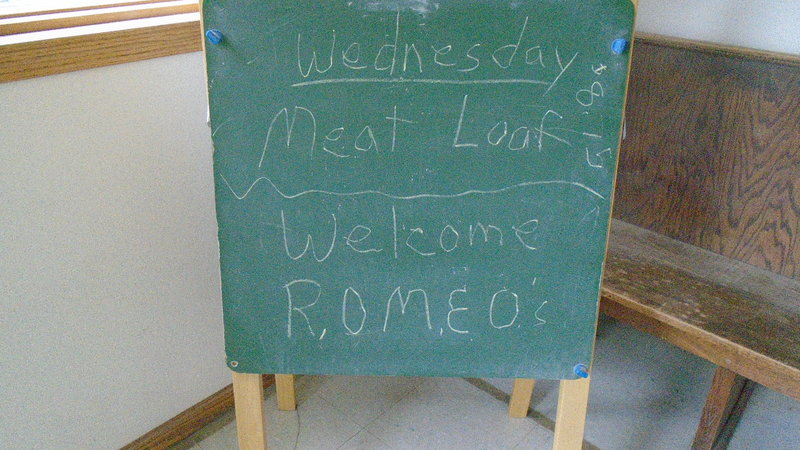 Wednesday
Meat Loaf
$8.15
Welcome
R.O.M.E.O.'s